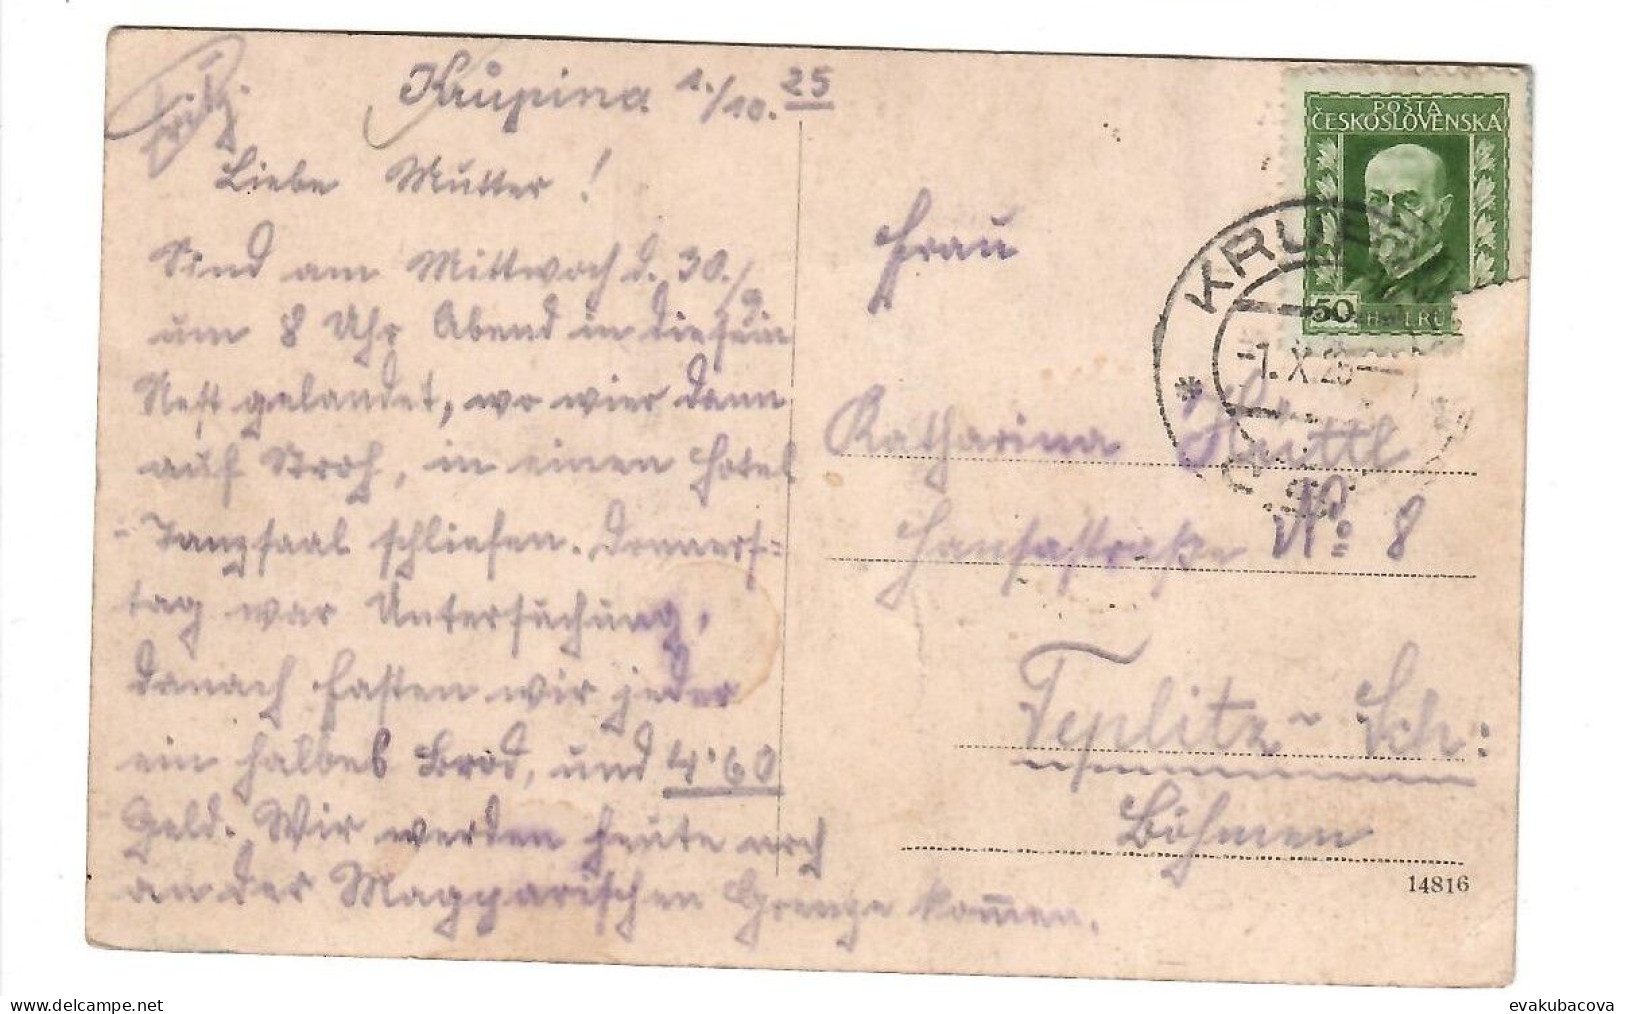 Fritz.
Krupina 1./10. 25
Liebe Mutter!
Sind am Mittwoch d. 30./9.
um 8 Uhr Abend in diesem
Nest gelandet, wo wier dann
auf Stroh, in einen Hotel
-Tanzsaal schliefen. Donners=
tag war Untersuchung,
danach fasten wir jeder
ein halbes Brod, und 4·60
Geld. Wir werden heute noch
an der Magyarischen Grenze kommen.
POŠTA
ČESKOSLOVENSKÁ
50
KRUP
-1.X.25
Frau
Katharina Huttl
Hansastraße No 8
Teplitz-Sch:
Böhmen
14816
evakubacova